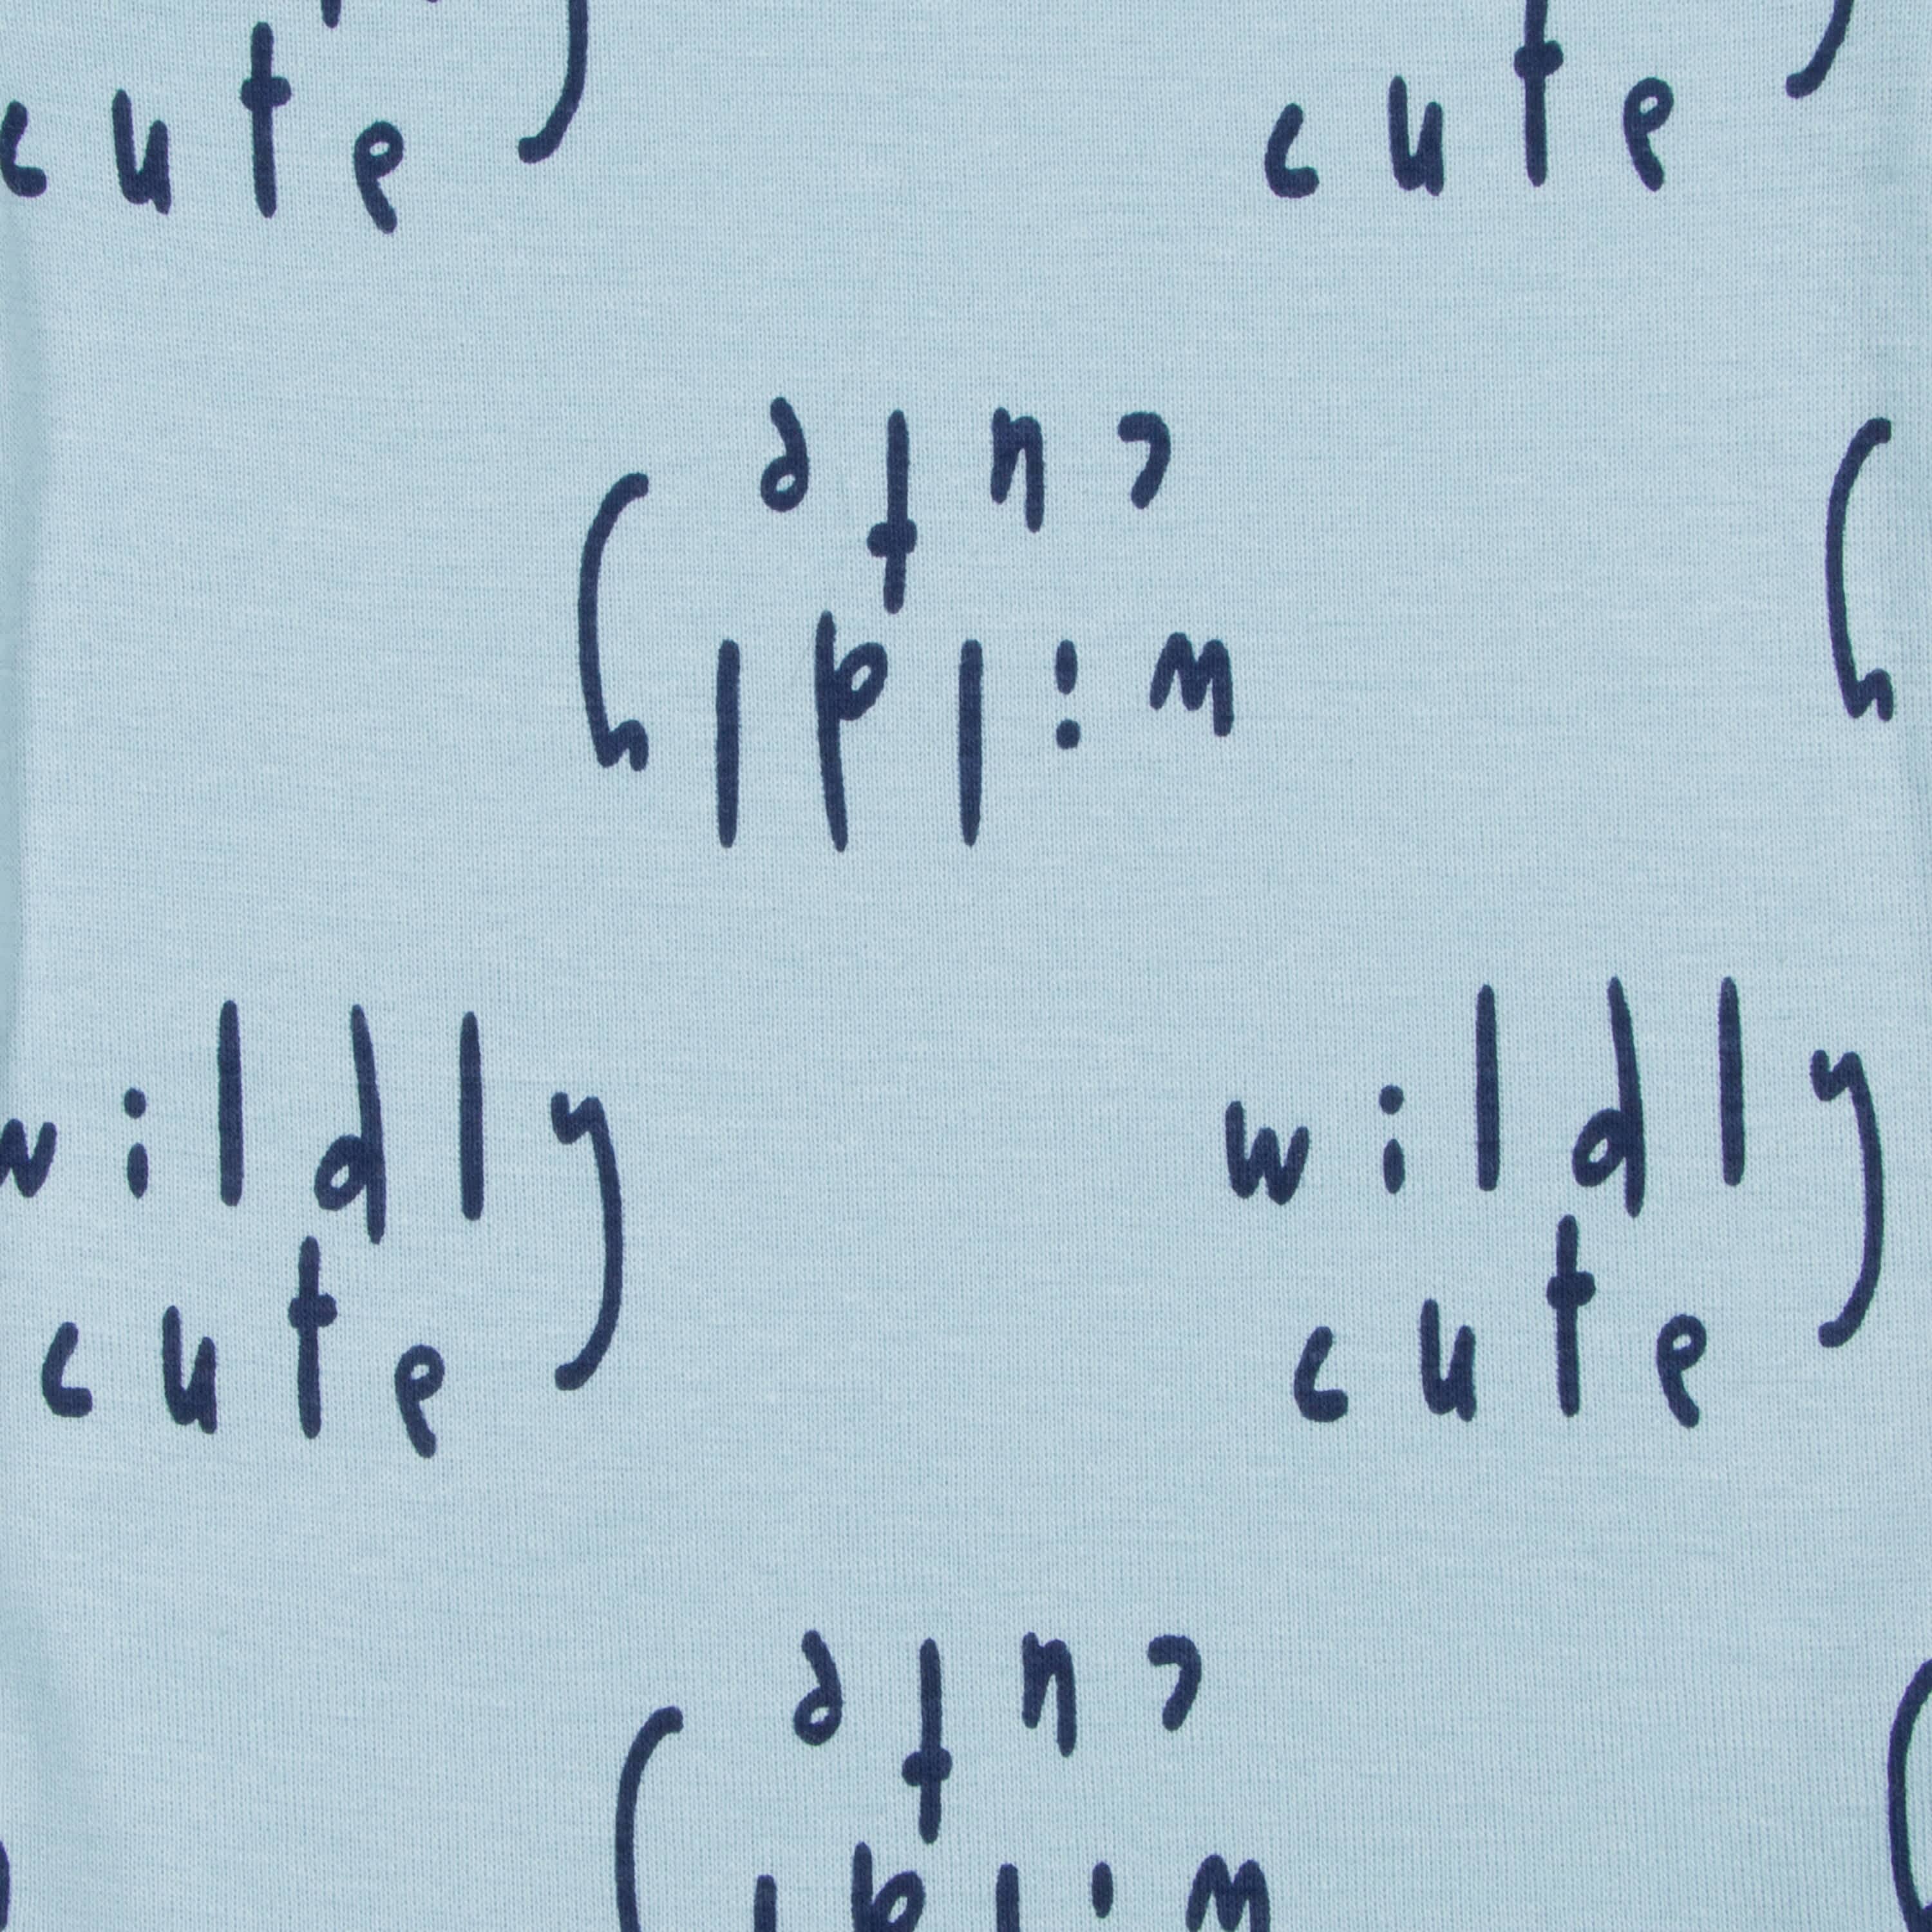 cute
cute
cute
wildly
wildly
cute
wildly
cute
cute
wildly